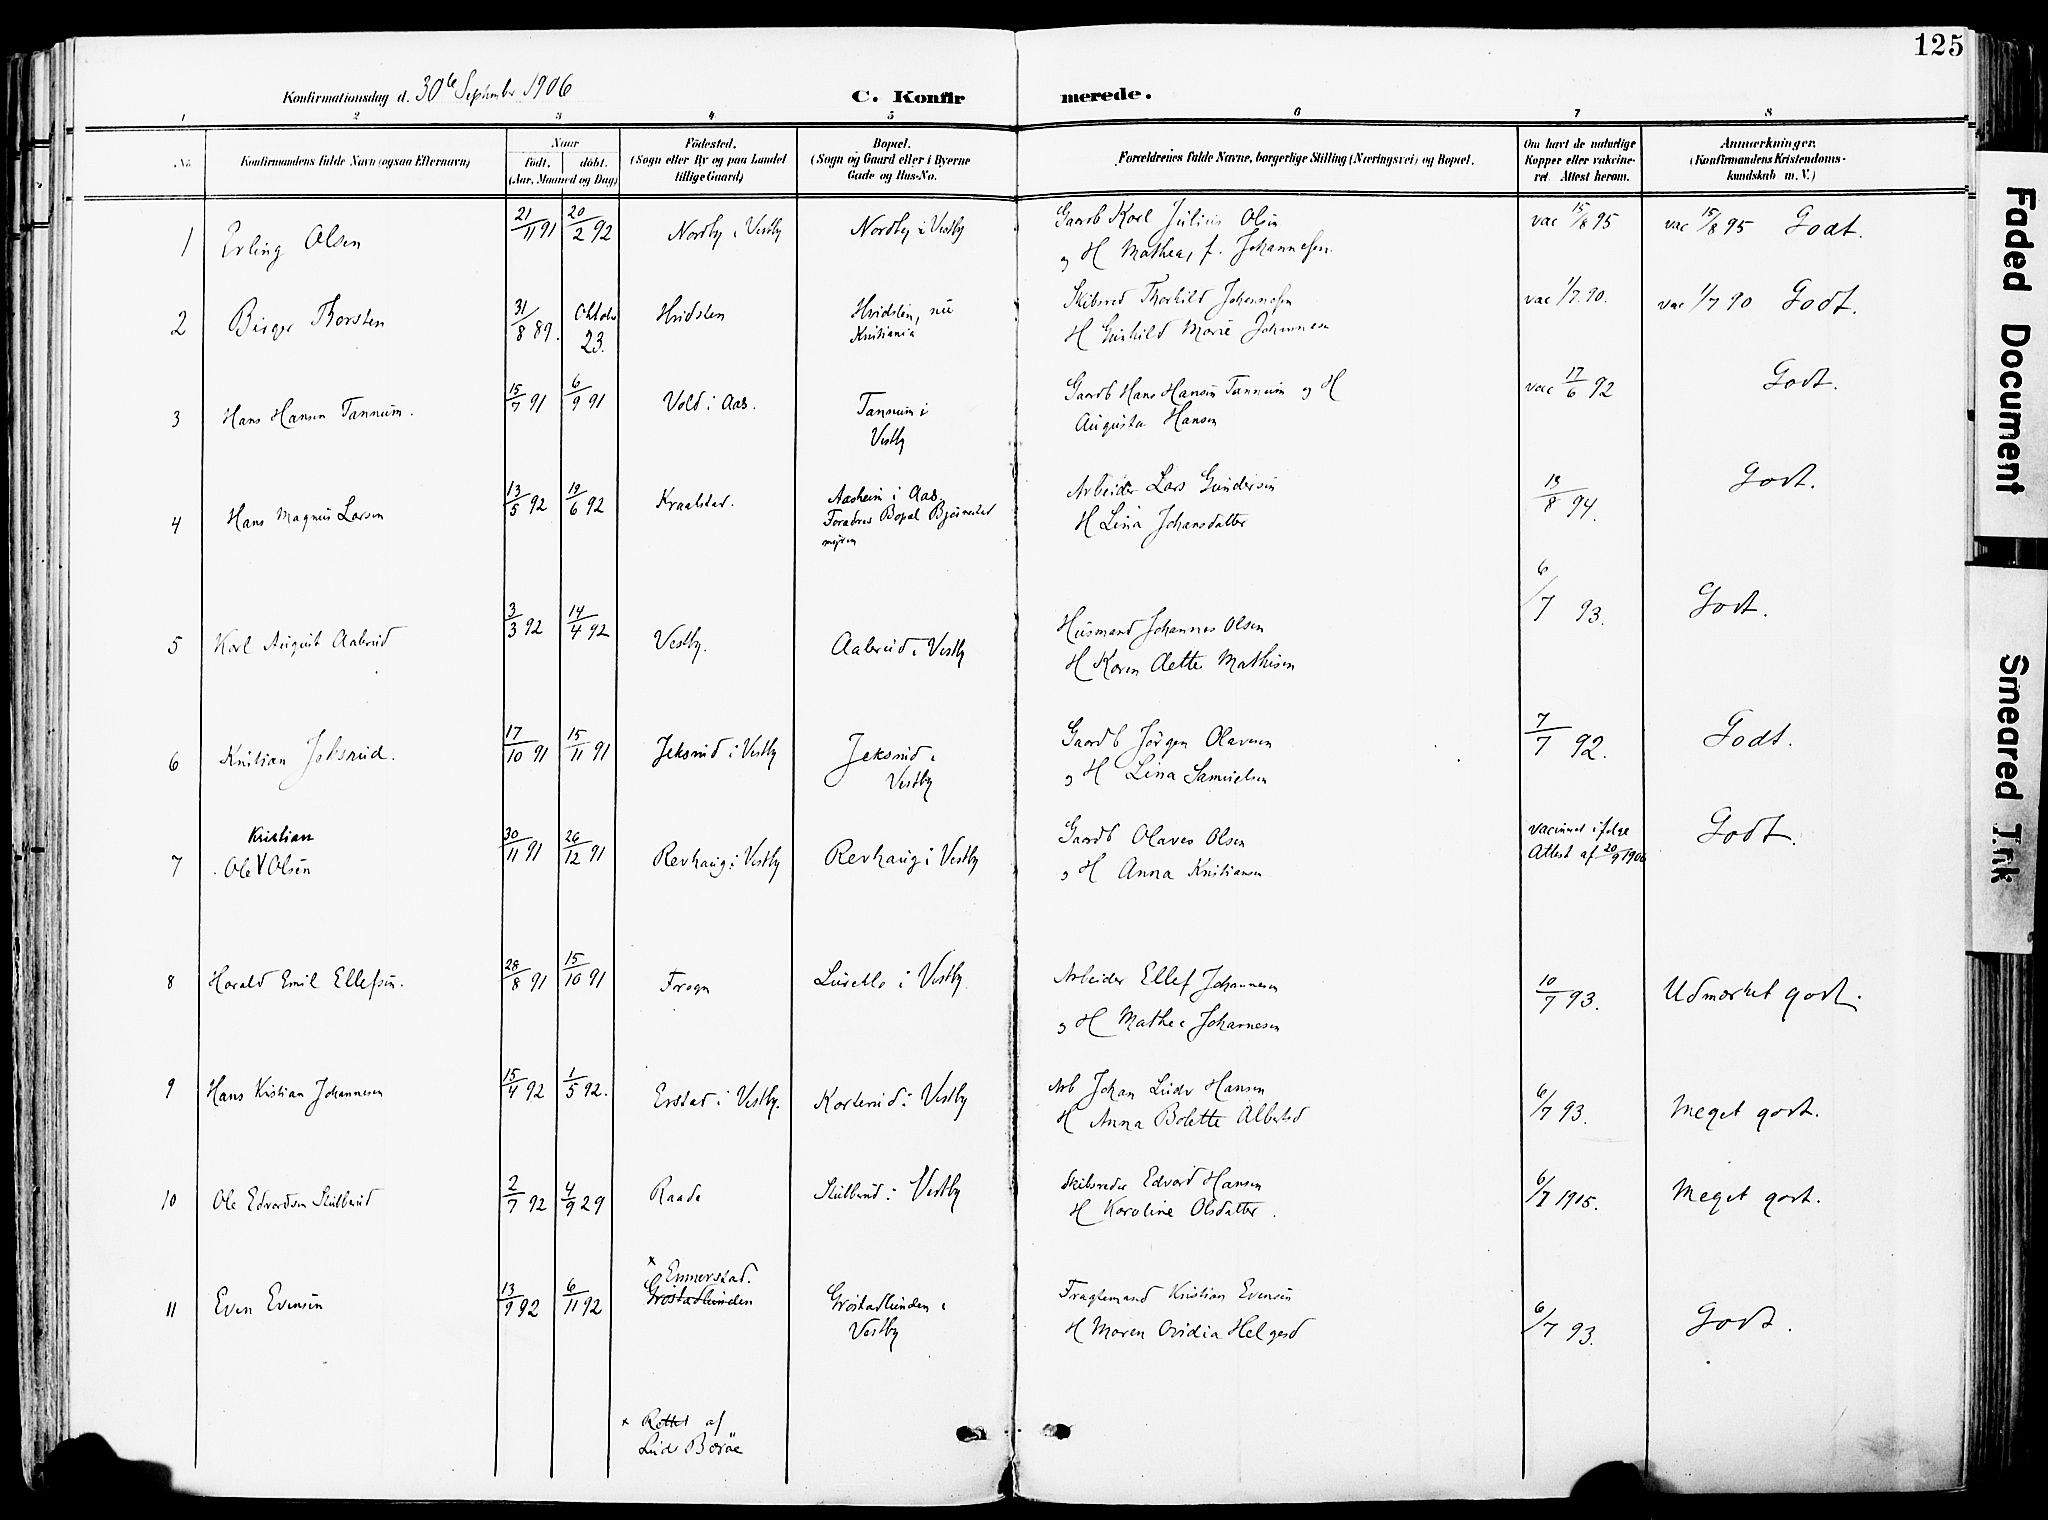 125
Konfirmationsdag d. 30te September 1906
C. Konfirmerede.
1 2 3 4 5 6 7 8
No. Konfirmandens fulde Navn (ogsaa Efternavn)
Naar
født, døbt.
(Aar, Maaned og Dag)
Fødested.
(Sogn eller By og paa Landet
tillige Gaard)
Bopæl.
(Sogn og Gaard eller i Byerne
Gade og Hus-No.
Forældrenes fulde Navne, borgerlige Stilling (Næringsvei) og Bopæl.
Om havt de naturlige
Kopper eller vakcine-
ret. Attest herom.
Anmærkninger.
(Konfirmandens Kristendoms-
kundskab m. V.)
1 Erling Olsen 21/11 91 20/2 92 Nordby i Vestby Nordby i Vestby Gaardb Karl Julius Olsen vac 15/8 95 vac 15/8 95 Godt.
og H Mathea, f. Johannesen
2 Birger Thorsten 31/8 89. Oktober 23. Hvidsten Hvidsten, nu Skibsred Thorkild Johannesen vac 1/7 90. vac 1/7 90 Godt.
Kristiania H Gunhild Marie Johannesen
3 Hans Hansen Tannum. 15/7 91 6/9 91 Vold i Aas. Tannum i Gaardb Hans Hansen Tannum og H vac 17/6 92 Godt.
Vestby Augusta Hansen
4 Hans Magnus Larsen 13/5 92 19/6 92 Kraakstad. Aasheim i Aas. Arbeider Lars Gundersen 13/8 94. Godt.
Foradres Bopæl Bjørnestad H Lina Johansdatter
myren
5 Karl August Aabrud 3/3 92 14/4 92 Vestby. Aabrud i Vestby Husmand Johannes Olsen 6/7 93. Godt.
H Karen Aette Mathisen
6 Kristian Jeksrud. 17/10 91 15/11 91 Jeksrud i Vestby Jeksrud i Gaardb Jørgen Olavesen 7/7 92. Godt.
Vestby og H Lina Samuelsen
Kristian
7 Ole V Olsen 30/11 91 26/12 91 Revhaug i Vestby Revhaug i Vestby Gaardb Olaves Olsen vaccineret ifølge Godt.
Attest af 20/9 1906
og H Anna Kristiansen
8 Harald Emil Ellefsen. 28/8 91 15/10 91 Frogn i Vestby. Arbeider Ellef Johannesen 10/7 93. Udmærket godt.
og H Mathea Johannesen
9 Hans Kristian Johannesen 15/4 92 1/5 92. Erstad i Vestby. Korterud i Vestby Arb Johan Luder Hansen 6/7 93. Meget godt.
H Anna Bolette Albertsd
10 Ole Edvardsen Skutberud 2/7 92 4/9 29 Raade Skutberud i Vestby Skibsreder Edvard Hansen 6/7 1915. Meget godt.
H Karoline Olsdatter.
x Emmerstad.
11 Even Evensen 13/9 92 6/11 92 Grøstadlunden Grøstadlunden i Fragtemand Kristian Evensen 6/7 93. Godt.
Vestby H Maren Ovidia Helgesd
x Rettet af
Luds Barøe
Faded Document
Smeared Ink